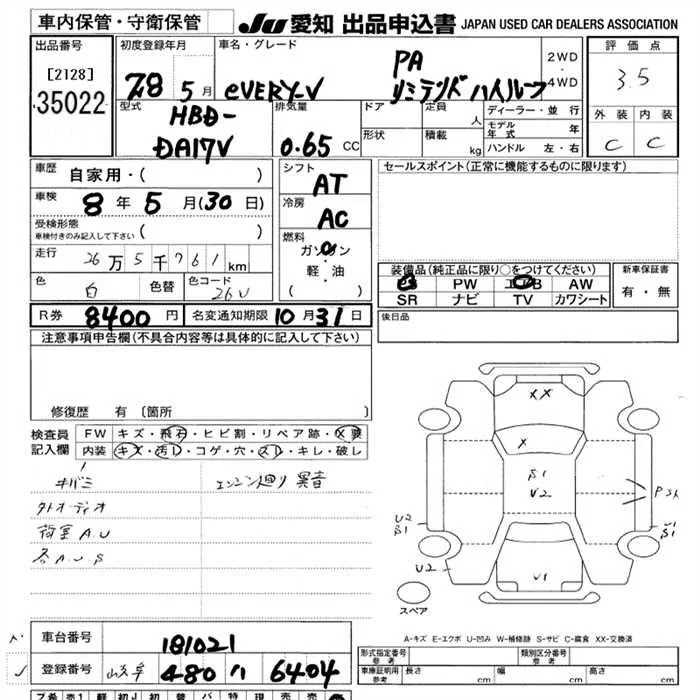 車内保管・守衛保管
JU 愛知 出品申込書 JAPAN USED CAR DEALERS ASSOCIATION
出品番号
[2128]
35022
初度登録年月
28 5月
車名・グレード
eVERY-V
PA
リミテッド ハイルーフ
2WD
・
4WD
評価点
3.5
外装 内装
C C
型式
HBD-
DA17V
排気量
0.65 CC
ドア
形状
定員 人
積載 kg
ディーラー・並行
モデル年式 年
ハンドル 左・右
車歴 自家用・( )
車検 8年5月(30日)
受検形態
車検付きのみ記入して下さい ( )
走行 26万5千761km
色 白 色替 色コード 26U
シフト
AT
冷房
AC
燃料
ガソリン
軽・油
( )
セールスポイント(正常に機能するものに限ります)
装備品(純正品に限り○をつけてください)
PS PW エアB AW
SR ナビ TV カワシート
新車保証書
有・無
後日品
R券 8400円 名変通知期限 10月31日
注意事項申告欄(不具合内容等は具体的に記入して下さい)
修復歴 有 〔箇所 〕
検査員記入欄
FW キズ・飛石・ヒビ割・リペア跡・X要
内装 キズ・汚レ・コゲ・穴・スレ・キレ・破レ
キバミ
エンジン廻り異音
外オーディオ
荷室A.U
各A.U.S
XX
X
S1
U2
U2
S1
U2
U1
U1
S1
スペア
A-キズ E-エクボ U-凹み W-補修跡 S-サビ C-腐食 XX-交換済
車台番号 181021
登録番号 岐阜 480 ハ 6404
形式指定番号
参考
類別区分番号
参考
車庫証明用
参考
長さ cm 幅 cm 高さ cm